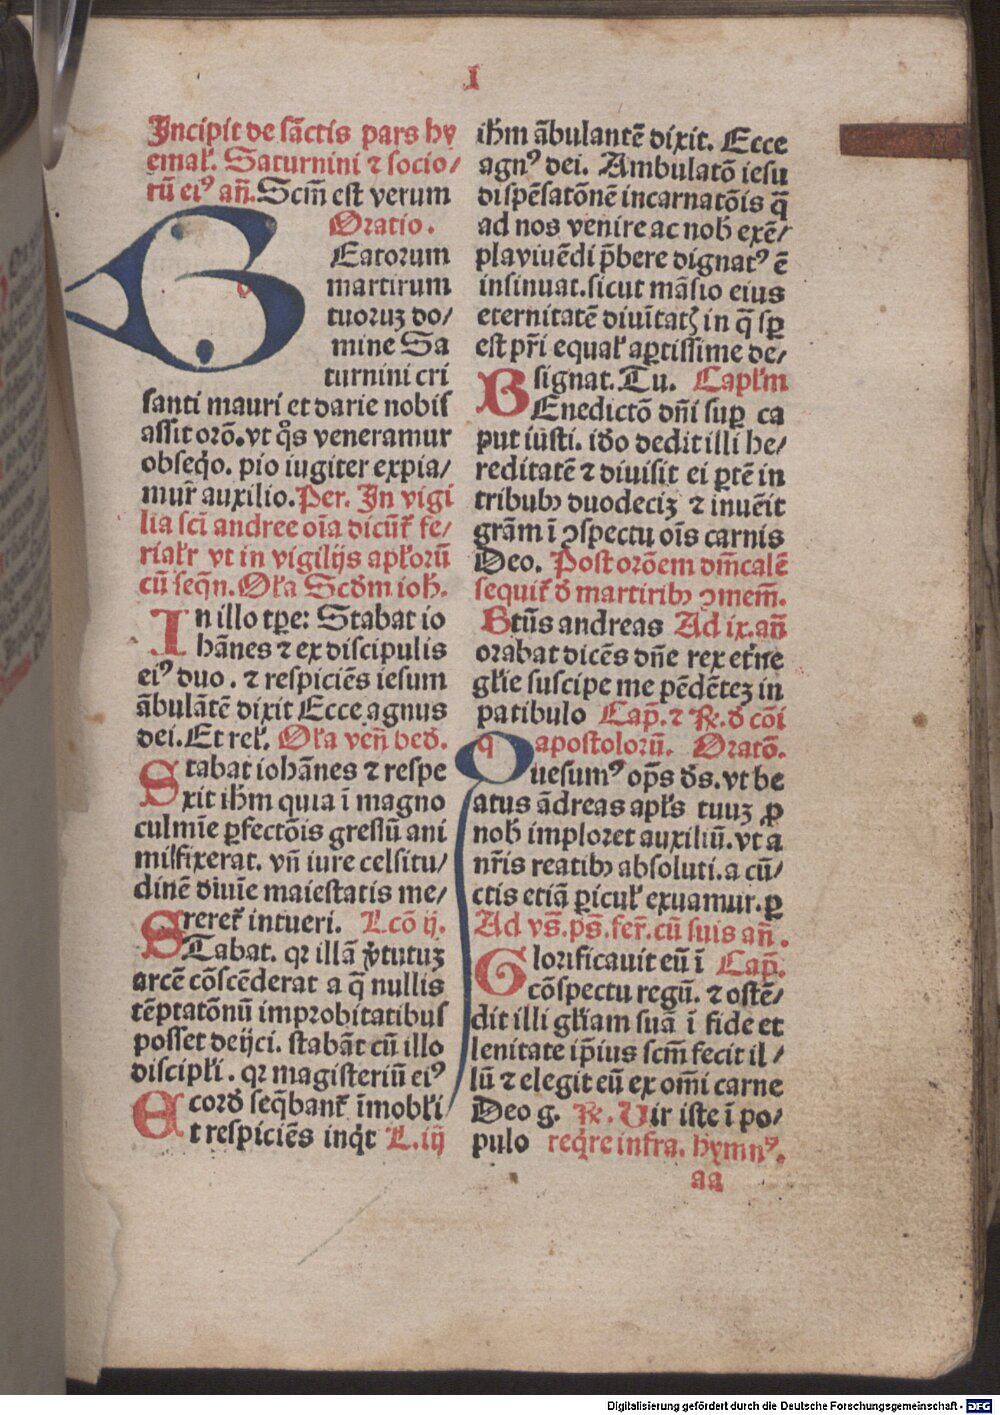 I
Incipit de sāctis pars hy
emaꝉ. Saturnini ⁊ socio/
rū eiꝰ añ. Scm̄ est verum
Oratio.
BEatorum
martirum
tuoruꝫ do/
mine Sa
turnini cri
santi mauri et darie nobis
assit orō. vt q̊s veneramur
obseq̇o. pio iugiter expia/
mur̃ auxilio. Per. In vigi
lia sci̅ andree oīa dicūt̃ fe/
riaꝉr vt in vigilijs apꝉorū
cū seqn̄. Oꝉa Scd̄m ioh̄.
In illo tꝑe: Stabat io
hānes ⁊ ex discipulis
eiꝰ duo. ⁊ respiciēs iesum
ābulātē dixit Ecce agnus
dei. Et reꝉ. Oꝉa ven̄ bed̄.
Stabat iohānes ⁊ respe
xit ihm̄ quia ī magno
culmīe ꝑfectōis gressū ani
mi fixerat. vn̄ iure celsitu/
dinē diuīe maiestatis me/
reret̃ intueri. Lcō ij.
STabat. qꝛ illā ṽtutuꝫ
arcē cōscēderat a q̄ nullis
tēptatōnū improbitatibus
posset deijci. stabāt cū illo
discipꝉi. qꝛ magisteriū eiꝰ
cord̄ seq̄bant̃ īmobꝉi
Et respiciēs inq̇t L. iij
ihm̄ ābulantē dixit. Ecce
agnꝰ dei. Ambulatō iesu
dispēsatōnē incarnatōis q̄
ad nos venire ac nob̄ exē/
pla viuēdi p̄bere dignatꝰ ē
insinuat. sicut māsio eius
eternitatē diuītatꝭ in q̄ sꝑ
est pr̄i equaꝉ aꝑtissime de/
signat. Tu. Capꝉm
BEnedictō dn̄i suꝑ ca
put iusti. iđo dedit illi he/
reditatē ⁊ diuisit ei ꝑtē in
tribubꝫ duodeciꝫ ⁊ inuēit
grām ī ꝯspectu oīs carnis
Deo. Post orōem dm̄calē
sequit̃ đ martiribꝫ ꝯmem̄.
Btūs andreas Ad ix. añ
orabat dicēs dn̄e rex et̃ne
gꝉie suscipe me pēdēteꝫ in
patibulo Cap̄. ⁊ ℟. đ cōi
apostolorū. Oratō.
Quesumꝰ op̄s đs. vt be
atus ādreas apꝉs tuuꝫ ꝓ
nob̄ imploret auxiliū. vt a
nr̄is reatibꝫ absoluti. a cū/
ctis etiā ꝑicuꝉ exuamur. ꝑ
Ad vs̄. ps̄. fer̄. cū suis añ.
Glorificauit eū ī Cap̄.
cōspectu regū. ⁊ ostē/
dit illi gꝉiam suā ī fide et
lenitate ip̄ius scm̄ fecit il/
lū ⁊ elegit eū ex om̄i carne
Deo g. ℟. Vir iste ī po/
pulo req̇re infra. hymnꝰ.
aa
Digitalisierung gefördert durch die Deutsche Forschungsgemeinschaft - DFG